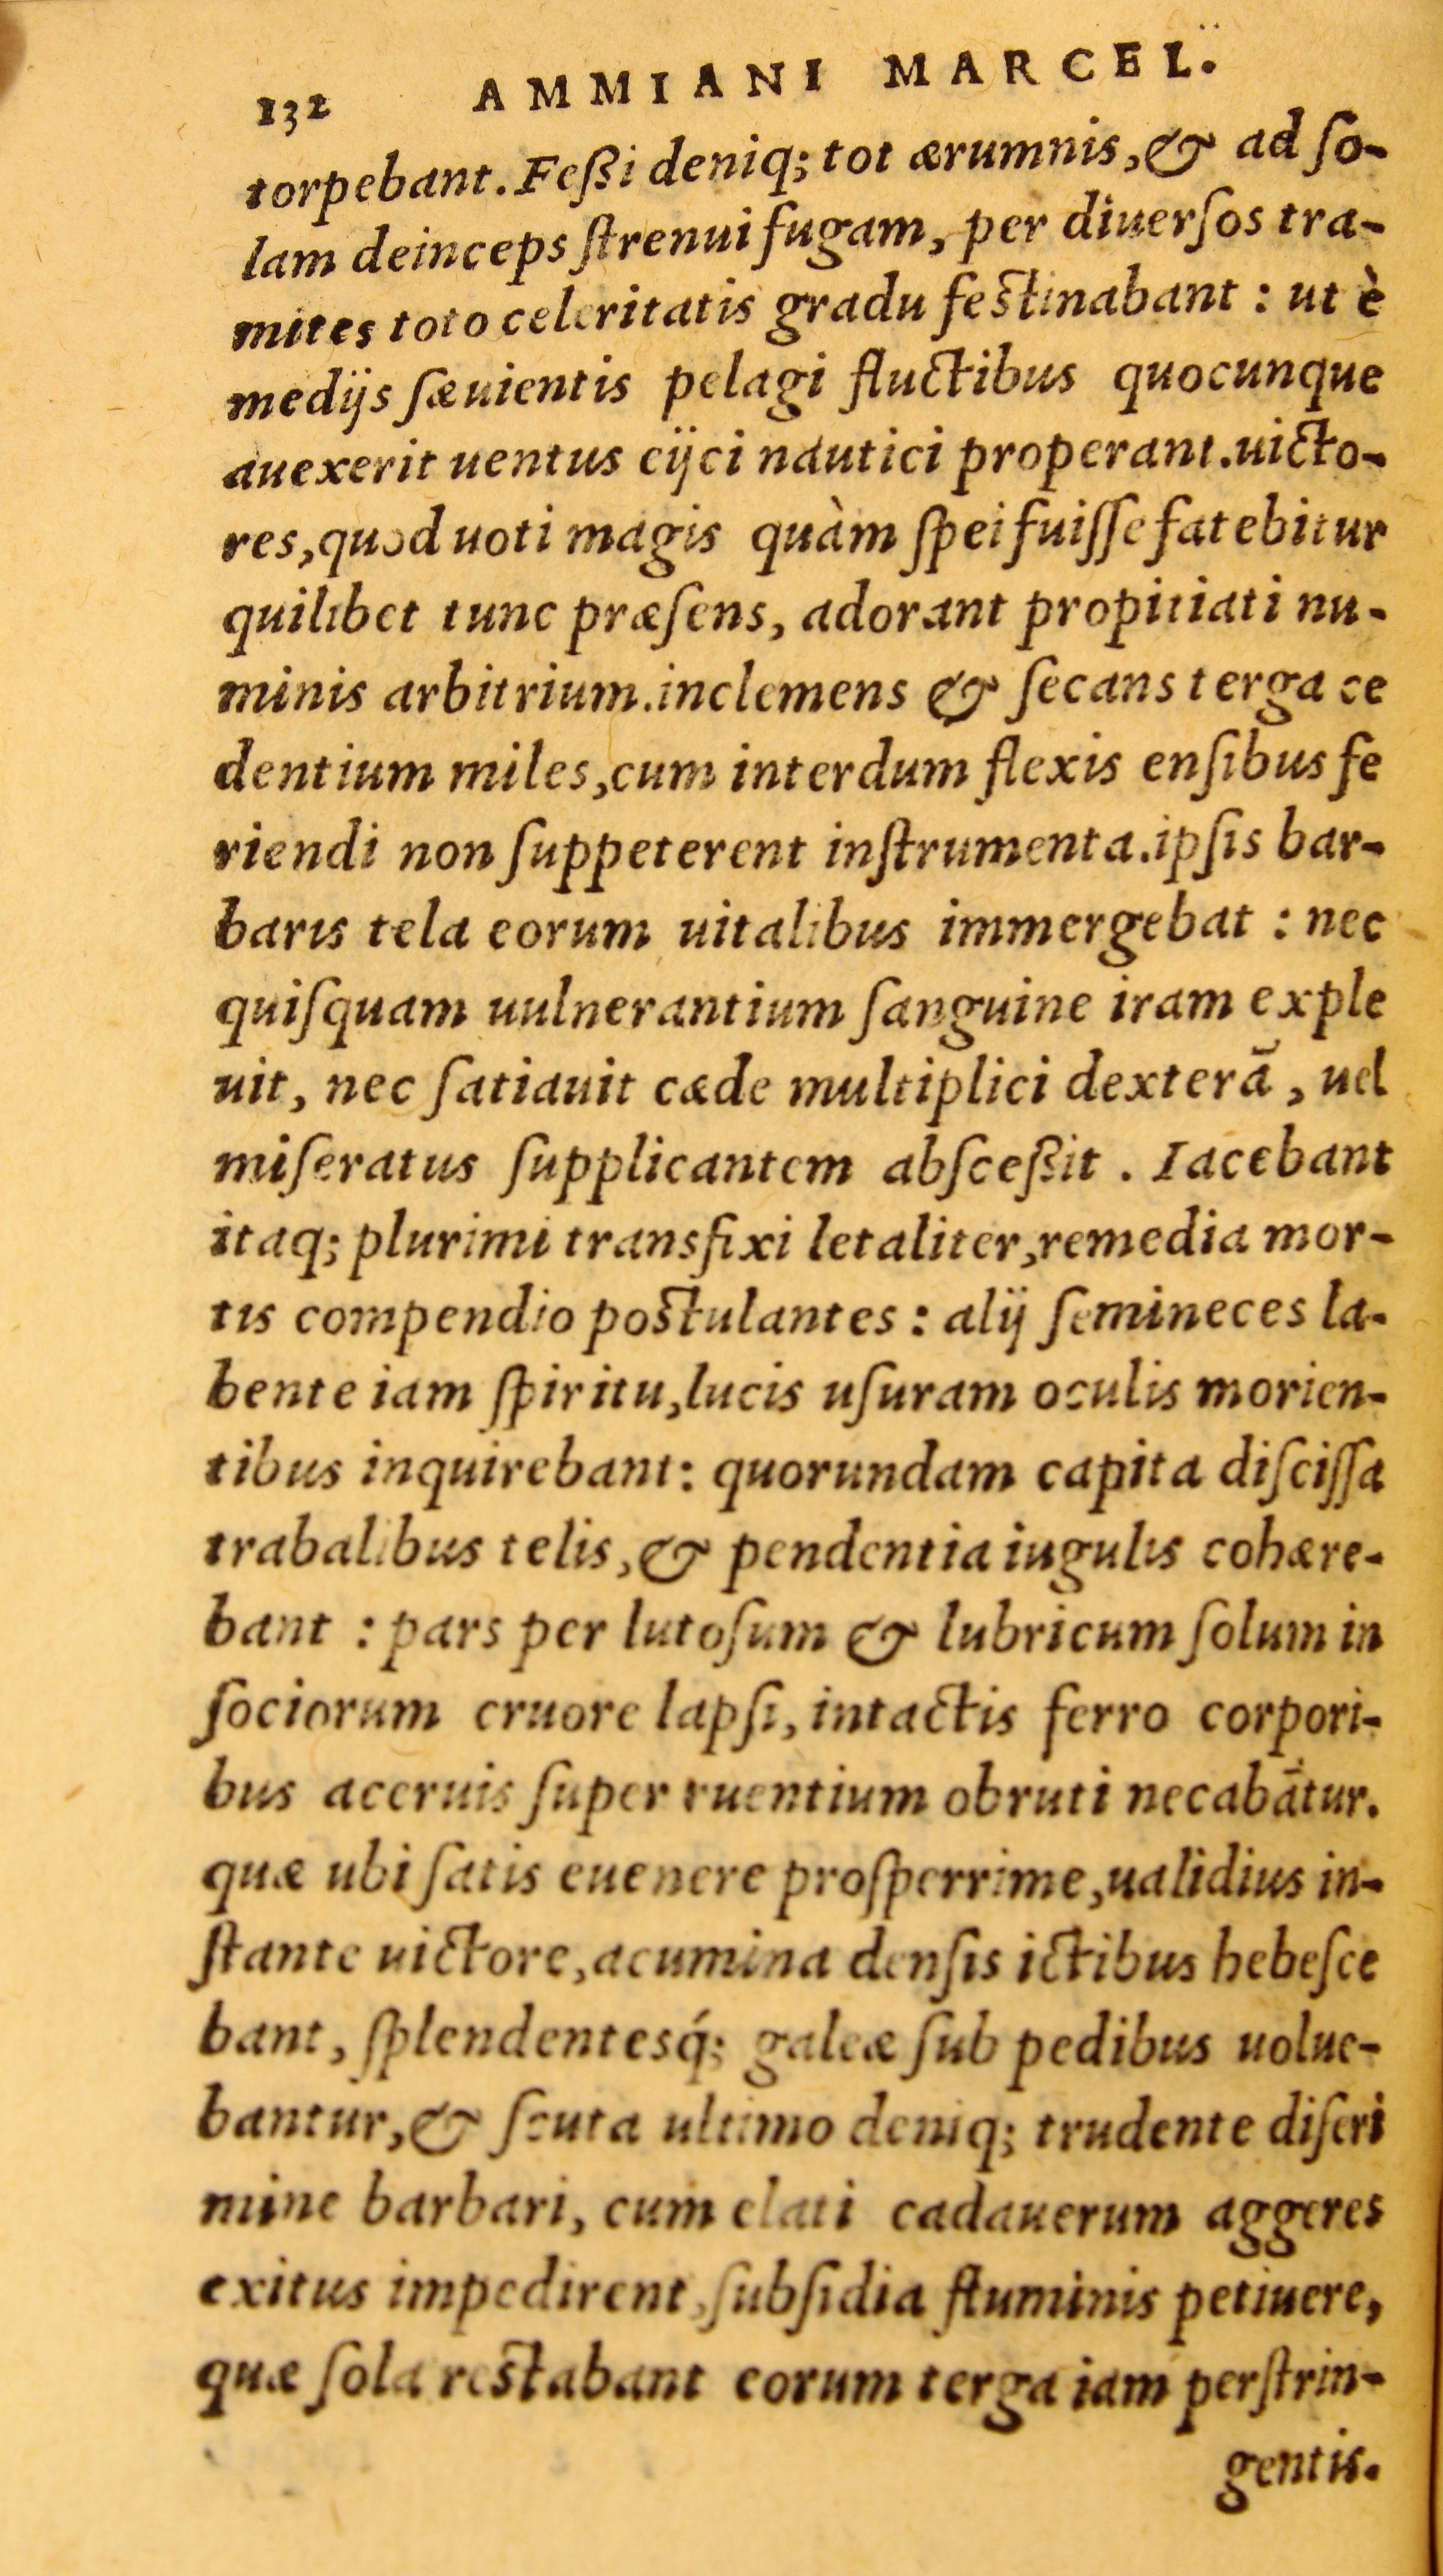 132 AMMIANI MARCEL.
torpebant. Feßi deniq; tot ærumnis, & ad ſo-
lam deinceps ſtrenui fugam, per diuerſos tra-
mites toto celeritatis gradu feſtinabant : ut è
medijs ſæuientis pelagi fluctibus quocunque
auexerit uentus eijci nautici properant. uicto-
res, quod uoti magis quàm ſpei fuiſſe fatebitur
quilibet tunc præſens, adorant propitiati nu-
minis arbitrium. inclemens & ſecans terga ce
dentium miles, cum interdum flexis enſibus fe
riendi non ſuppeterent inſtrumenta. ipſis bar-
baris tela eorum uitalibus immergebat : nec
quiſquam uulnerantium ſanguine iram exple
uit, nec ſatiauit cæde multiplici dexterā, uel
miſeratus ſupplicantem abſceßit. Iacebant
itaq; plurimi transfixi letaliter, remedia mor-
tis compendio poſtulantes : alij ſemineces la-
bente iam ſpiritu, lucis uſuram oculis morien-
tibus inquirebant: quorundam capita diſciſſa
trabalibus telis, & pendentia iugulis cohære-
bant : pars per lutoſum & lubricum ſolum in
ſociorum cruore lapſi, intactis ferro corpori-
bus aceruis ſuper ruentium obruti necabātur.
quæ ubi ſatis euenere proſperrime, ualidius in-
ſtante uictore, acumina denſis ictibus hebeſce
bant, ſplendentesq́; galeæ ſub pedibus uolue-
bantur, & ſcuta ultimo deniq; trudente diſcri
mine barbari, cum elati cadauerum aggeres
exitus impedirent, ſubſidia fluminis petiuere,
quæ ſola reſtabant eorum terga iam perſtrin-
gentis.